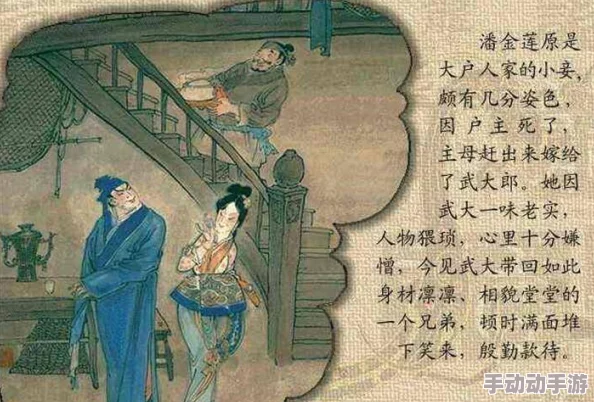 潘金莲原是
大户人家的小妾，
颇有几分姿色，
因户主死了，
主母赶出来嫁给
了武大郎。她因
武大一味老实，
人物猥琐，心里十分嫌
憎，今见武大带回如此
身材凛凛、相貌堂堂的
一个兄弟，顿时满面堆
下笑来，殷勤款待。
手动动手游